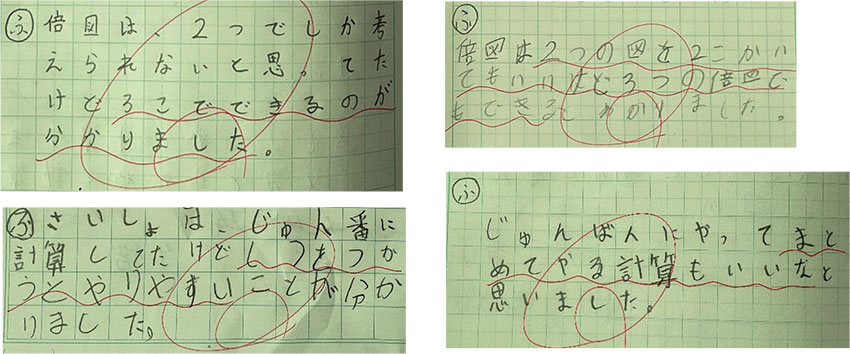 ふ 倍図は、2つでしか考
えられないと思ってた
けど3こでできるのが
分かりました。
ふ
倍図は2つの図を2こかい
てもいいけど3つの倍図で
もできるとわかりました。
ふ さいしょは、じゅん番に
計算してたけどしつをつか
うとやりやすいことが分か
りました。
ふ
じゅんばんにやってまと
めてやる計算もいいなと
思いました。